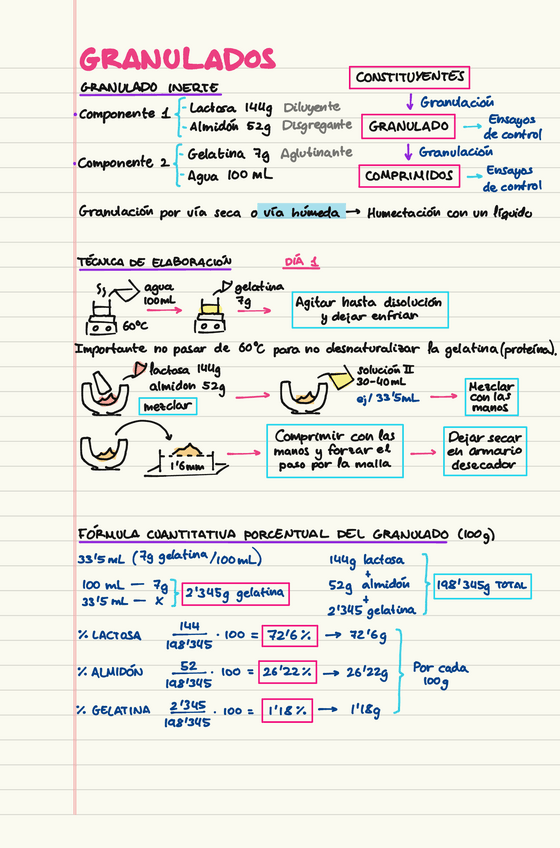 GRANULADOS
GRANULADO INERTE
Componente 1
- Lactosa 144g Diluyente
- Almidón 52g Disgregante
Componente 2
- Gelatina 7g Aglutinante
- Agua 100 mL
CONSTITUYENTES
Granulación
GRANULADO → Ensayos
de control
Granulación
COMPRIMIDOS → Ensayos
de control
Granulación por vía seca o vía húmeda → Humectación con un líquido
TÉCNICA DE ELABORACIÓN DÍA 1
agua
100mL
60ºC
gelatina
7g
Agitar hasta disolución
y dejar enfriar
Importante no pasar de 60ºC para no desnaturalizar la gelatina (proteína).
lactosa 144g
almidon 52g
mezclar
solución II
30-40mL
ej/ 33'5mL
Mezclar
con las
manos
1'6mm
Comprimir con las
manos y forzar el
paso por la malla
Dejar secar
en armario
desecador
FÓRMULA CUANTITATIVA PORCENTUAL DEL GRANULADO (100g)
33'5 mL (7g gelatina/100mL)
100 mL — 7g
33'5 mL — x
2'345g gelatina
144g lactosa
+
52g almidón
+
2'345 gelatina
198'345g TOTAL
% LACTOSA 144/198'345 · 100 = 72'6% → 72'6g
% ALMIDÓN 52/198'345 · 100 = 26'22% → 26'22g
% GELATINA 2'345/198'345 · 100 = 1'18% → 1'18g
Por cada
100g